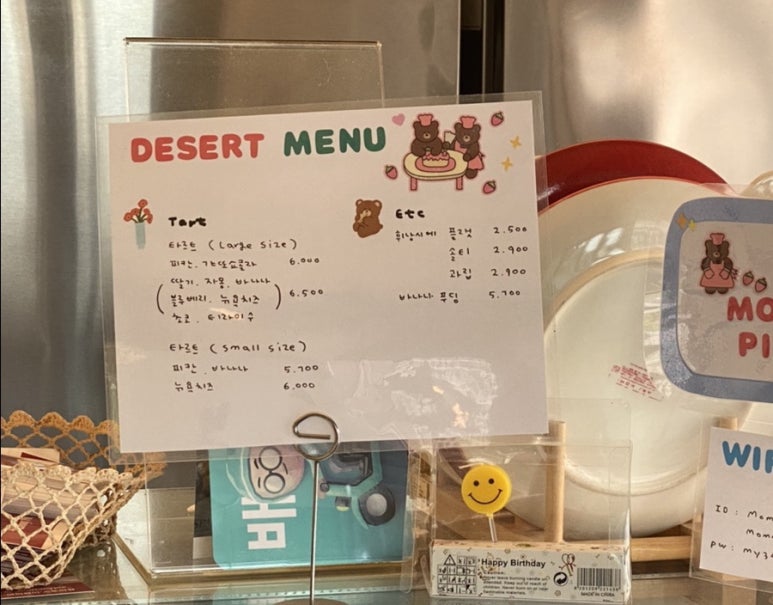 DESERT MENU
Tart
타르트 (Large size)
피칸. 갸또쇼콜라 6.000
딸기. 자몽. 바나나
블루베리. 뉴욕치즈 6.500
초코. 티라미수
타르트 (small size)
피칸. 바나나 5.700
뉴욕치즈 6.000
Etc
휘낭시에 플레인 2.500
솔티 2.900
과일 2.900
바나나 푸딩 5.700
MO
PI
WIF
ID : Mom
Momo
PW : my
배
Happy Birthday
MADE IN CHINA